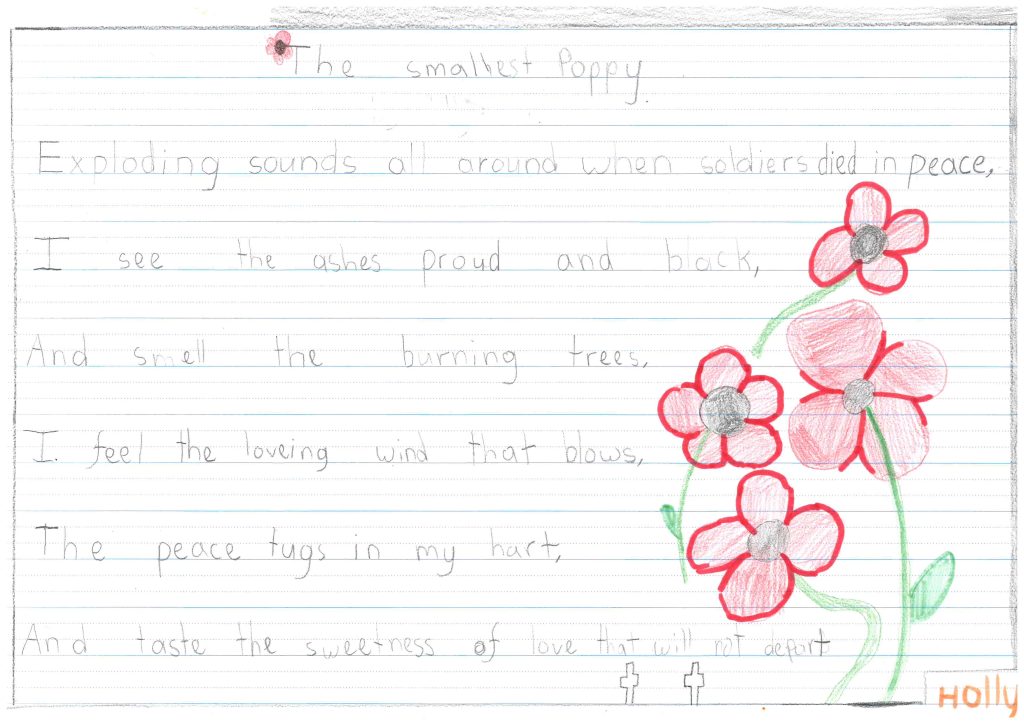 The smallest Poppy.
Exploding sounds all around when soldiers died in peace,
I see the ashes proud and black,
And smell the burning trees,
I feel the loveing wind that blows,
The peace tugs in my hart,
And taste the sweetness of love that will not depart
Holly